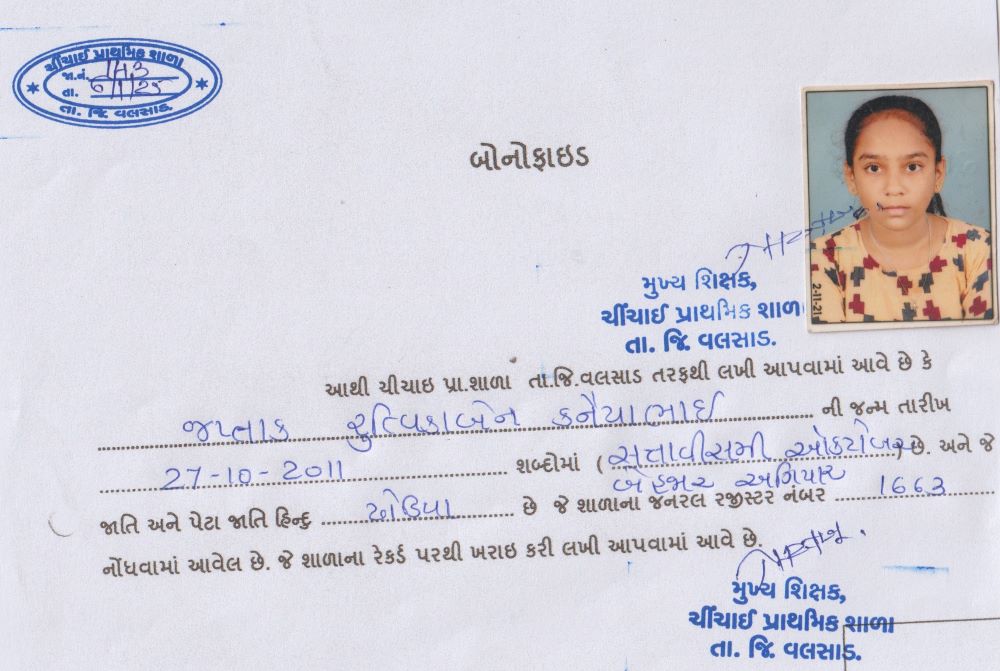 ચીંચાઈ પ્રાથમિક શાળા
જા.નં. 143
તા. 6/1/25
તા. જિ. વલસાડ.
બોનોફાઇડ
2-11-21
મુખ્ય શિક્ષક,
ચીંચાઈ પ્રાથમિક શાળા
તા. જિ. વલસાડ.
આથી ચીચાઇ પ્રા.શાળા તા.જિ.વલસાડ તરફથી લખી આપવામાં આવે છે કે
જપ્તાક ઋત્વિકાબેન કનૈયાભાઈ ની જન્મ તારીખ
27-10-2011 શબ્દોમાં (સત્તાવીસમી ઓક્ટોબર) છે. અને જે
બે હજાર અગિયાર
જાતિ અને પેટા જાતિ હિન્દુ ઢોડિયા છે જે શાળાના જનરલ રજીસ્ટર નંબર 1663
નોંધવામાં આવેલ છે. જે શાળાના રેકર્ડ પરથી ખરાઇ કરી લખી આપવામાં આવે છે.
મુખ્ય શિક્ષક,
ચીંચાઈ પ્રાથમિક શાળા
તા. જિ. વલસાડ.